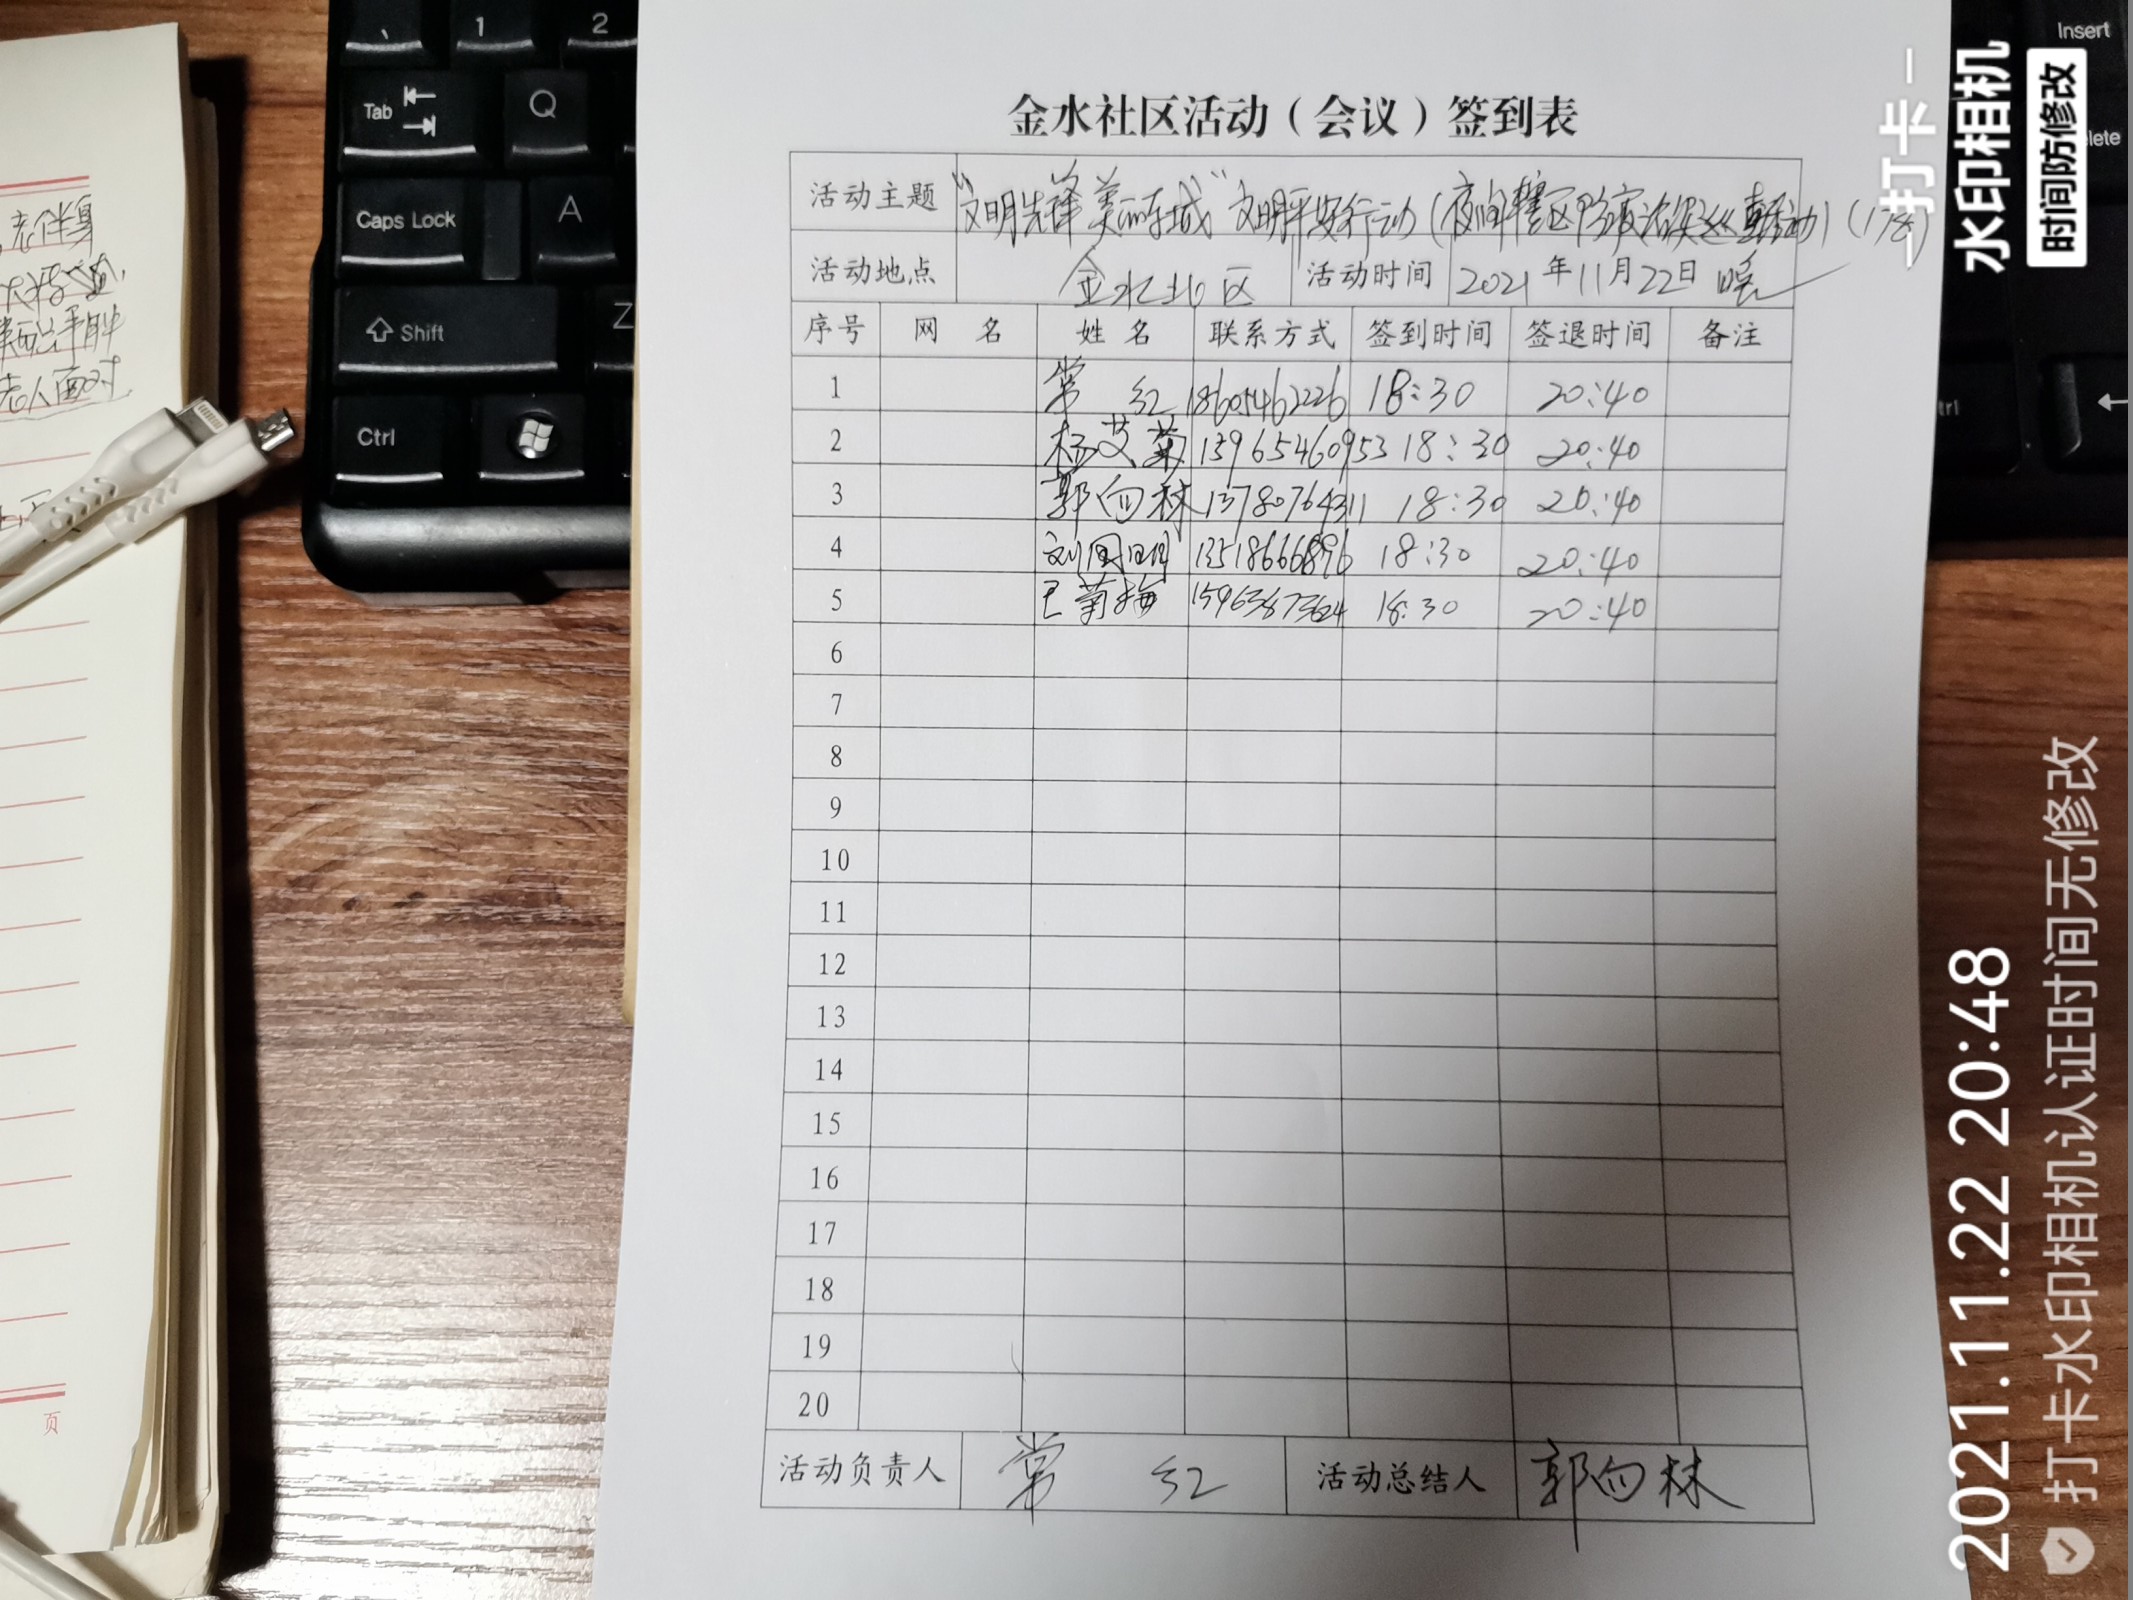 金水社区活动（会议）签到表
活动主题 "文明先锋 美丽东城" 文明平安行动（夜间辖区防疫治安巡逻活动）（178）
活动地点 金水北区 活动时间 2021年11月22日 晚
序号 网 名 姓 名 联系方式 签到时间 签退时间 备注
1 常 红 18605462226 18:30 20:40
2 杨艾菊 13965460953 18:30 20:40
3 郭向林 13780764311 18:30 20:40
4 刘国明 13518666896 18:30 20:40
5 菊梅 18:30 20:40
6
7
8
9
10
11
12
13
14
15
16
17
18
19
20
活动负责人 常 红 活动总结人 郭向林
老伴身
老人面对
页
、 1 2
Tab Q
Caps Lock A
Shift Z
Ctrl
Insert
lete
trl
打卡
水印相机
时间防修改
2021.11.22 20:48
打卡水印相机认证时间无修改